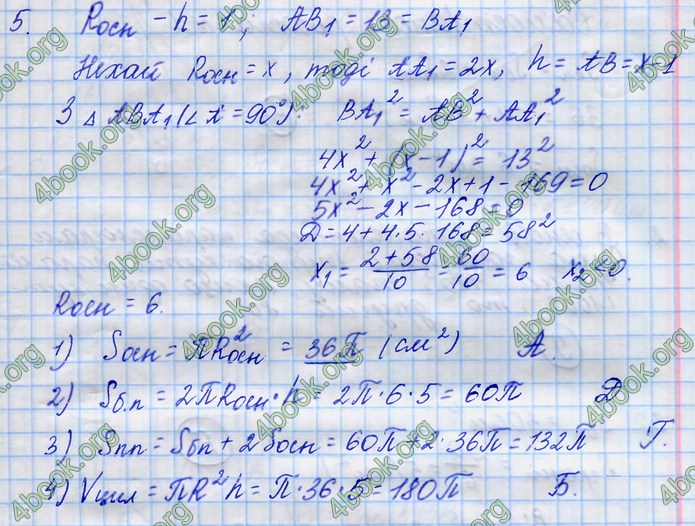 5. Rосн - h = 1, AB₁ = 13 = BA₁
Нехай Rосн = x, тоді AA₁ = 2x, h = AB = x-1
З △ ABA₁ (∠A = 90°). BA₁² = AB² + AA₁²
4x² + (x-1)² = 13²
4x² + x² - 2x + 1 - 169 = 0
5x² - 2x - 168 = 0
Д = 4 + 4·5·168 = 58²
x₁ = (2+58)/10 = 60/10 = 6 x₂ < 0.
Rосн = 6.
1) Sосн = πRосн² = 36π (см²) А.
2) Sб.п = 2πRосн·h = 2π·6·5 = 60π Д
3) Sпп = Sбп + 2Sосн = 60π + 2·36π = 132π Г.
4) Vцил = πR²h = π·36·5 = 180π Б.
4book.org